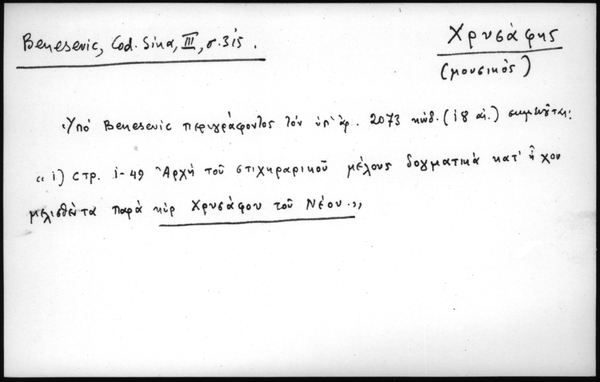 Benesevic, Cod. Sina, III, σ. 315.
Χρυσάφης
(μουσικός)
Ὑπό Benesevic περιγράφοντος τόν ὑπ' ἀρ. 2073 κώδ. (18 αἰ.) σημειοῦται:
"1) Στρ. 1-49 Ἀρχή τοῦ στιχηραρικοῦ μέλους δογματικά κατ' ἦχον
μελισθέντα παρά κύρ Χρυσάφου τοῦ Νέου."